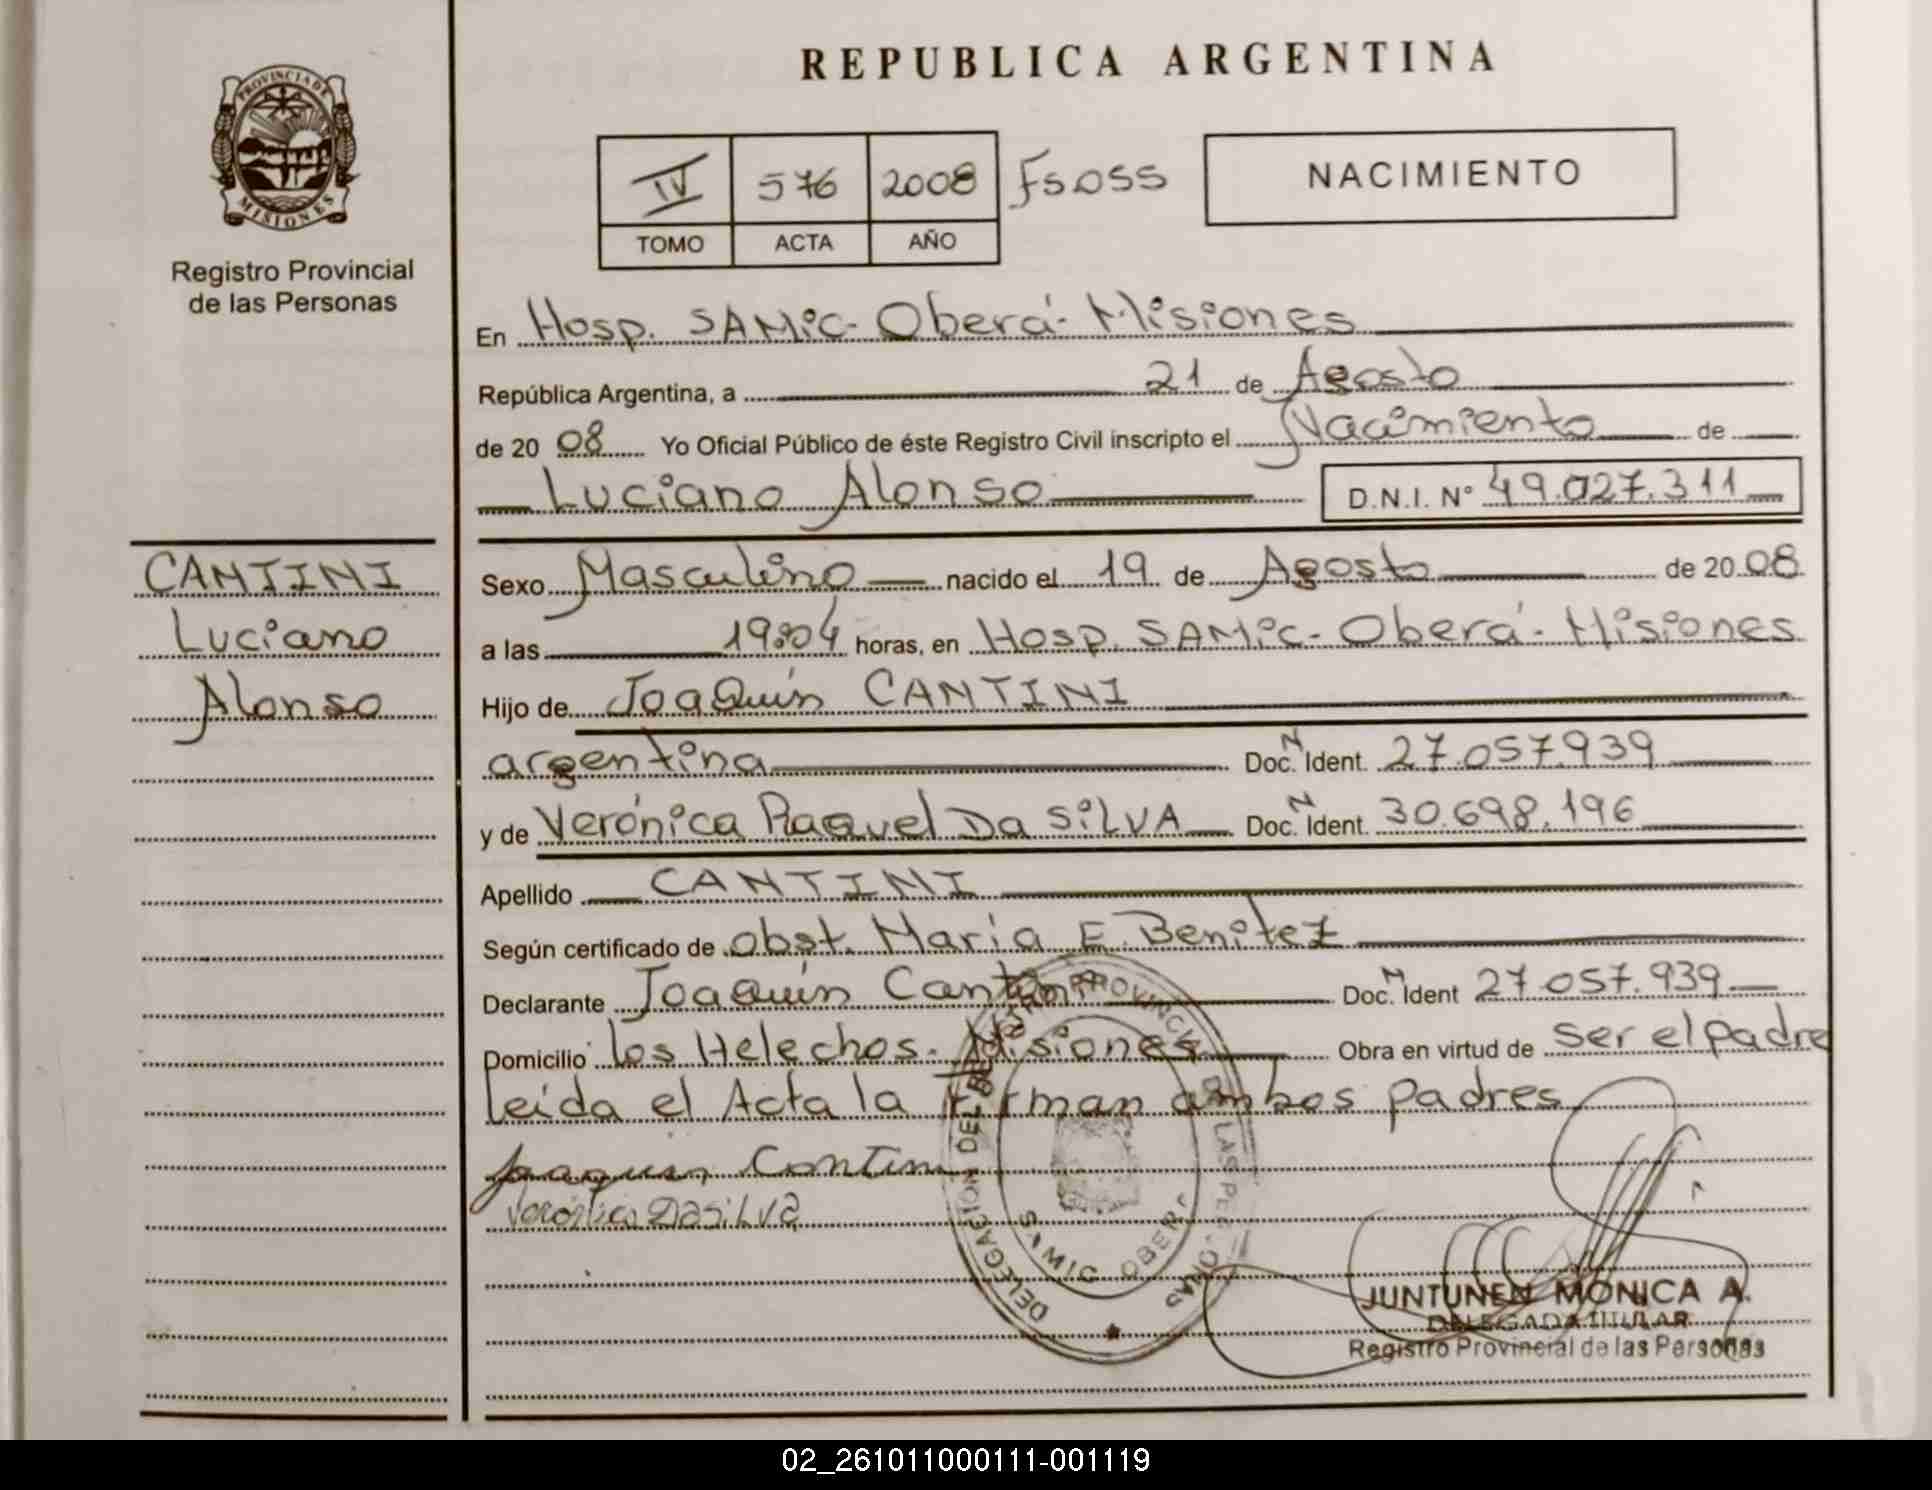 PROVINCIA DE
MISIONES
Registro Provincial
de las Personas
CANTINI
Luciano
Alonso
REPUBLICA ARGENTINA
IV 576 2008 Fs 055
TOMO ACTA AÑO
NACIMIENTO
En Hosp. SAMIC - Oberá - Misiones
República Argentina, a 21 de Agosto
de 20 08 Yo Oficial Público de éste Registro Civil inscripto el Nacimiento de
Luciano Alonso D.N.I. N° 49.027.311
Sexo Masculino nacido el 19 de Agosto de 20 08
a las 19:04 horas, en Hosp. SAMIC - Oberá - Misiones
Hijo de Joaquín CANTINI
argentina Doc. N Ident. 27.057.939
y de Verónica Raquel Da SILVA Doc. N Ident. 30.698.196
Apellido CANTINI
Según certificado de obst. María E. Benitez
Declarante Joaquín Cantini Doc. N Ident 27.057.939
Domicilio los Helechos - Misiones Obra en virtud de ser el padre
leída el Acta la firman ambos padres
Joaquin Cantini
Verónica Dasilva
DELEGACION DEL REGISTRO PROVINCIAL DE LAS PERSONAS
SAMIC OBERA
JUNTUNEN MONICA A.
DELEGADA TITULAR
Registro Provincial de las Personas
02_261011000111-001119